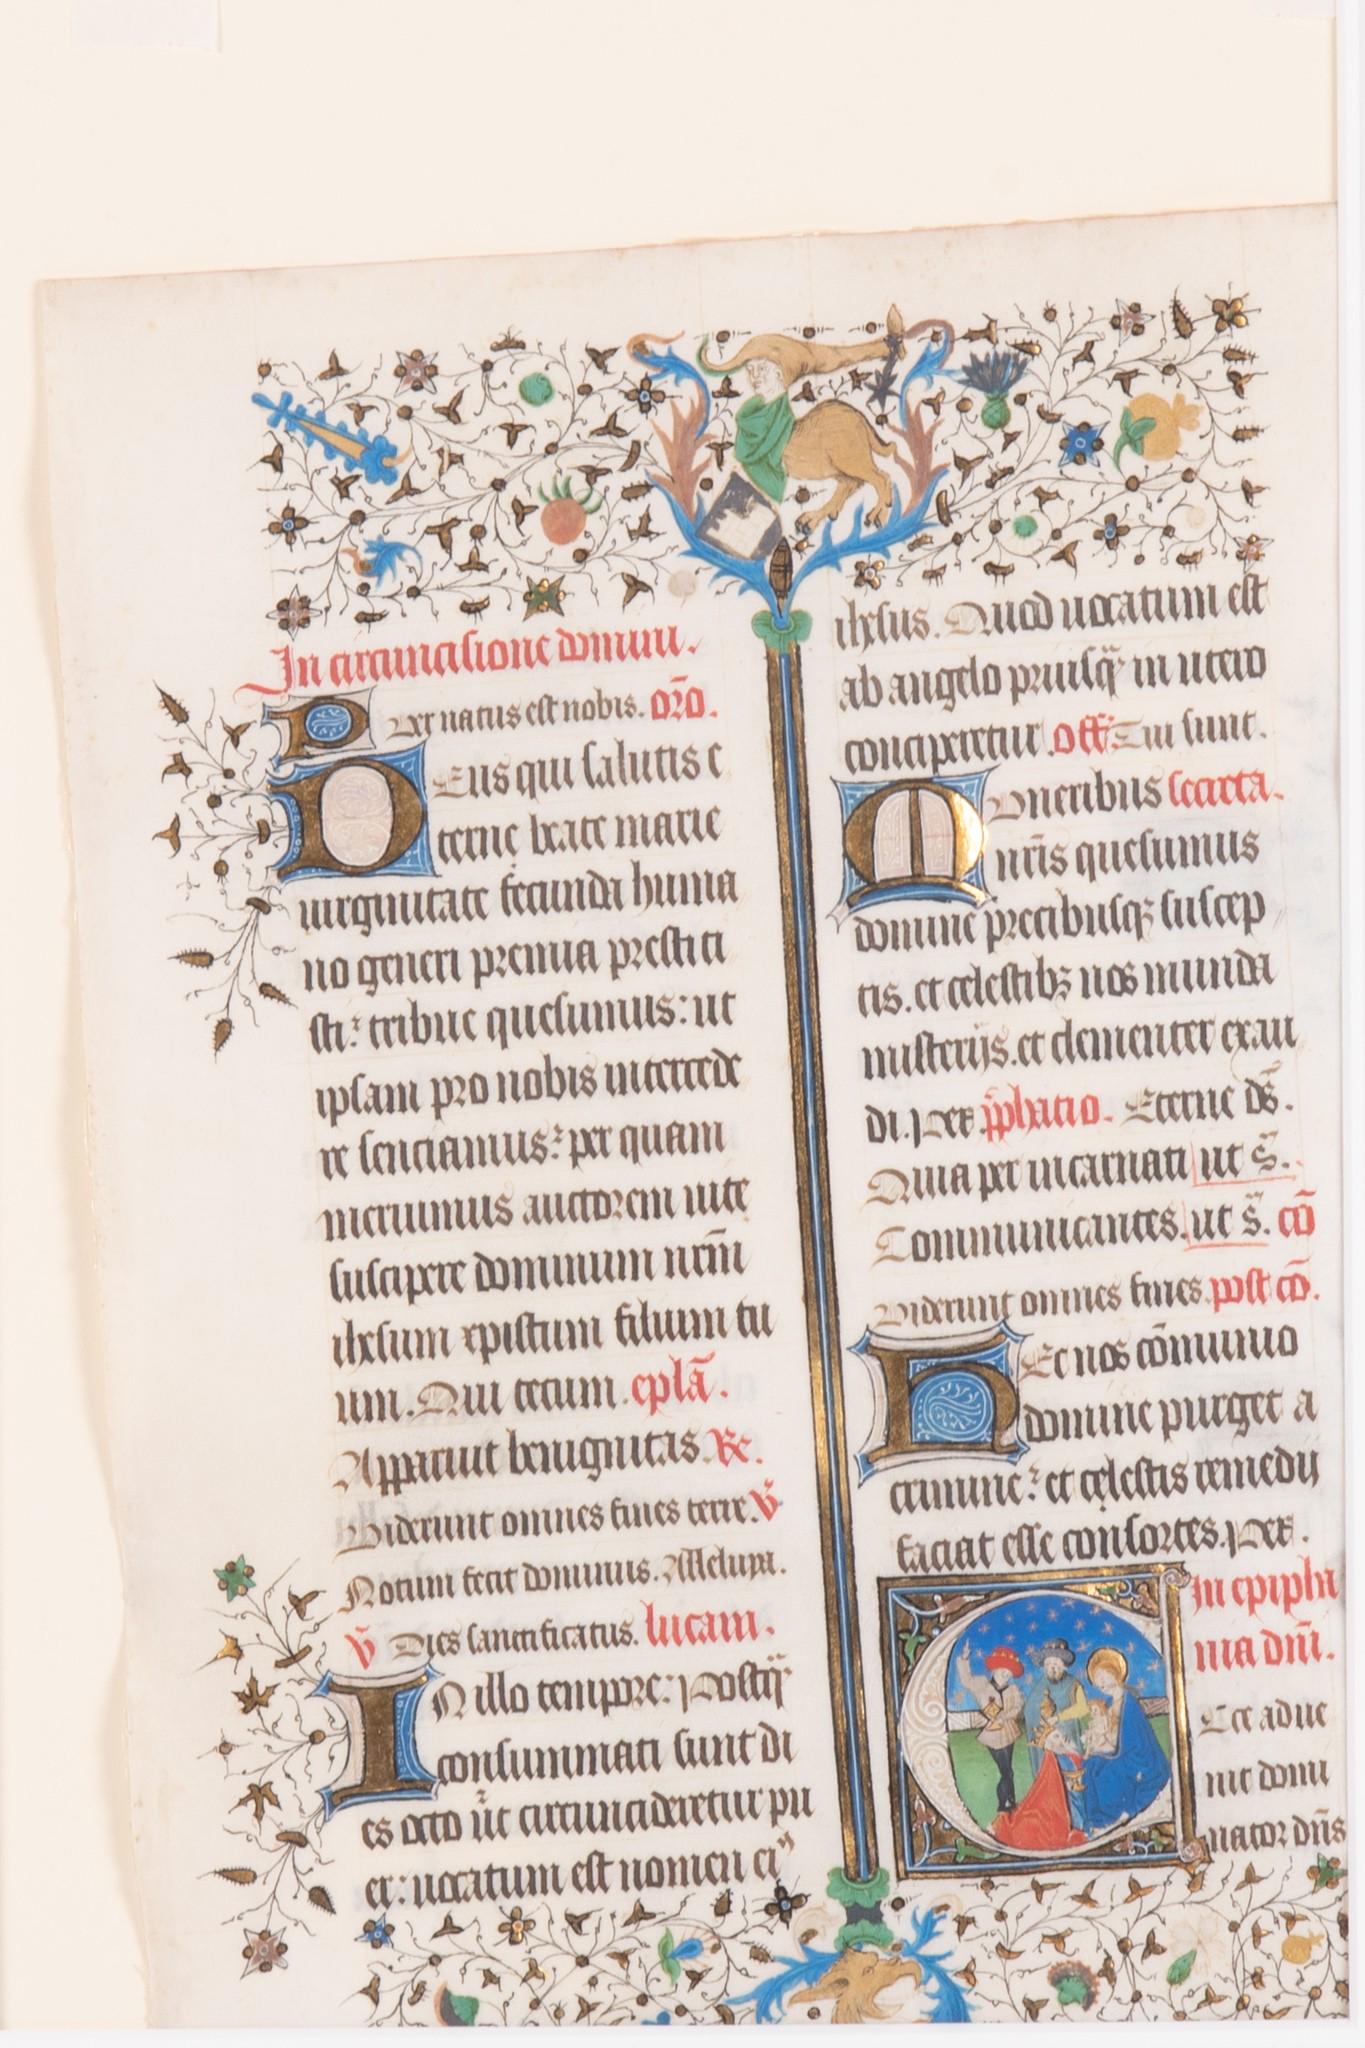 In circumcisione domini.
Puer natus est nobis. orō.
Deus qui salutis e
terne beate marie
uirginitate fecunda huma
no generi premia prestiti
sti: tribue quesumus: ut
ipsam pro nobis intercede
re senciamus: per quam
meruimus auctorem uite
suscipere dominum nrm̄
ihesum xpistum filium tu
um. Qui tecum. eplā.
Apparuit benignitas. Re.
Viderunt omnes fines terre. v̄
Notum fecit dominus. Alleluya.
v̄ Dies sanctificatus. lucam.
In illo tempore: Postq̄
consummati sunt di
es octo ut circumcideretur pu
er: uocatum est nomen ei9
ihesus. Quod uocatum est
ab angelo priusq̄ in utero
conciperetur. off. Tui sunt.
Muneribus secreta.
nr̄is quesumus
domine precibusqꝫ suscep
tis. et celestibꝫ nos munda
misterijs. et clementer exau
di. Per. p̄phatio. Eterne ds̄.
Quia per incarnati ut s̄.
Communicantes. ut s̄. cō
Viderunt omnes fines. post cō.
Hec nos cōmunio
domine purget a
crimine: et celestis remedij
faciat esse consortes. Per.
In epipha
nia dnī.
Ecce adue
nit domi
nator dn̄s